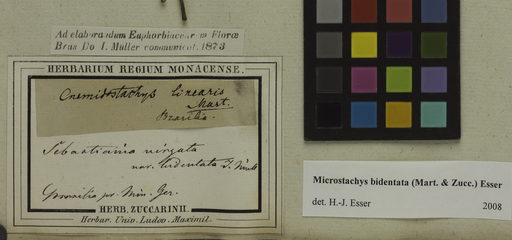 Ad elaborandum Euphorbiacearum Florae
Bras Do I. Müller communicat. 1873
HERBARIUM REGIUM MONACENSE.
Cnemidostachys linearis
Mart.
Brasilia.
Sebastiania virgata
var. bidentata J. Müll
Brasilia pr. Min. Ger.
HERB. ZUCCARINII.
Herbar. Univ. Ludov. Maximil.
Microstachys bidentata (Mart. & Zucc.) Esser
det. H.-J. Esser
2008